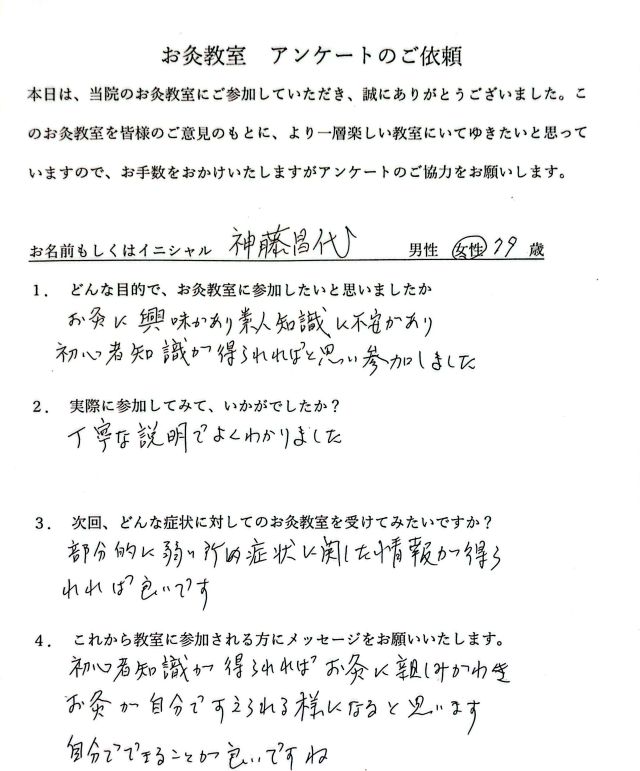 お灸教室　アンケートのご依頼
本日は、当院のお灸教室にご参加していただき、誠にありがとうございました。こ
のお灸教室を皆様のご意見のもとに、より一層楽しい教室にいてゆきたいと思って
いますので、お手数をおかけいたしますがアンケートのご協力をお願いします。
お名前もしくはイニシャル　神藤昌代　男性　女性　79　歳
1．　どんな目的で、お灸教室に参加したいと思いましたか
お灸に興味があり素人知識に不安があり
初心者知識が得られればと思い参加しました
2．　実際に参加してみて、いかがでしたか？
丁寧な説明でよくわかりました
3．　次回、どんな症状に対してのお灸教室を受けてみたいですか？
部分的に弱い所の症状に関した情報が得ら
れれば良いです
4．　これから教室に参加される方にメッセージをお願いいたします。
初心者知識が得られればお灸に親しみがわき
お灸が自分ですえられる様になると思います
自分でできることが良いですね